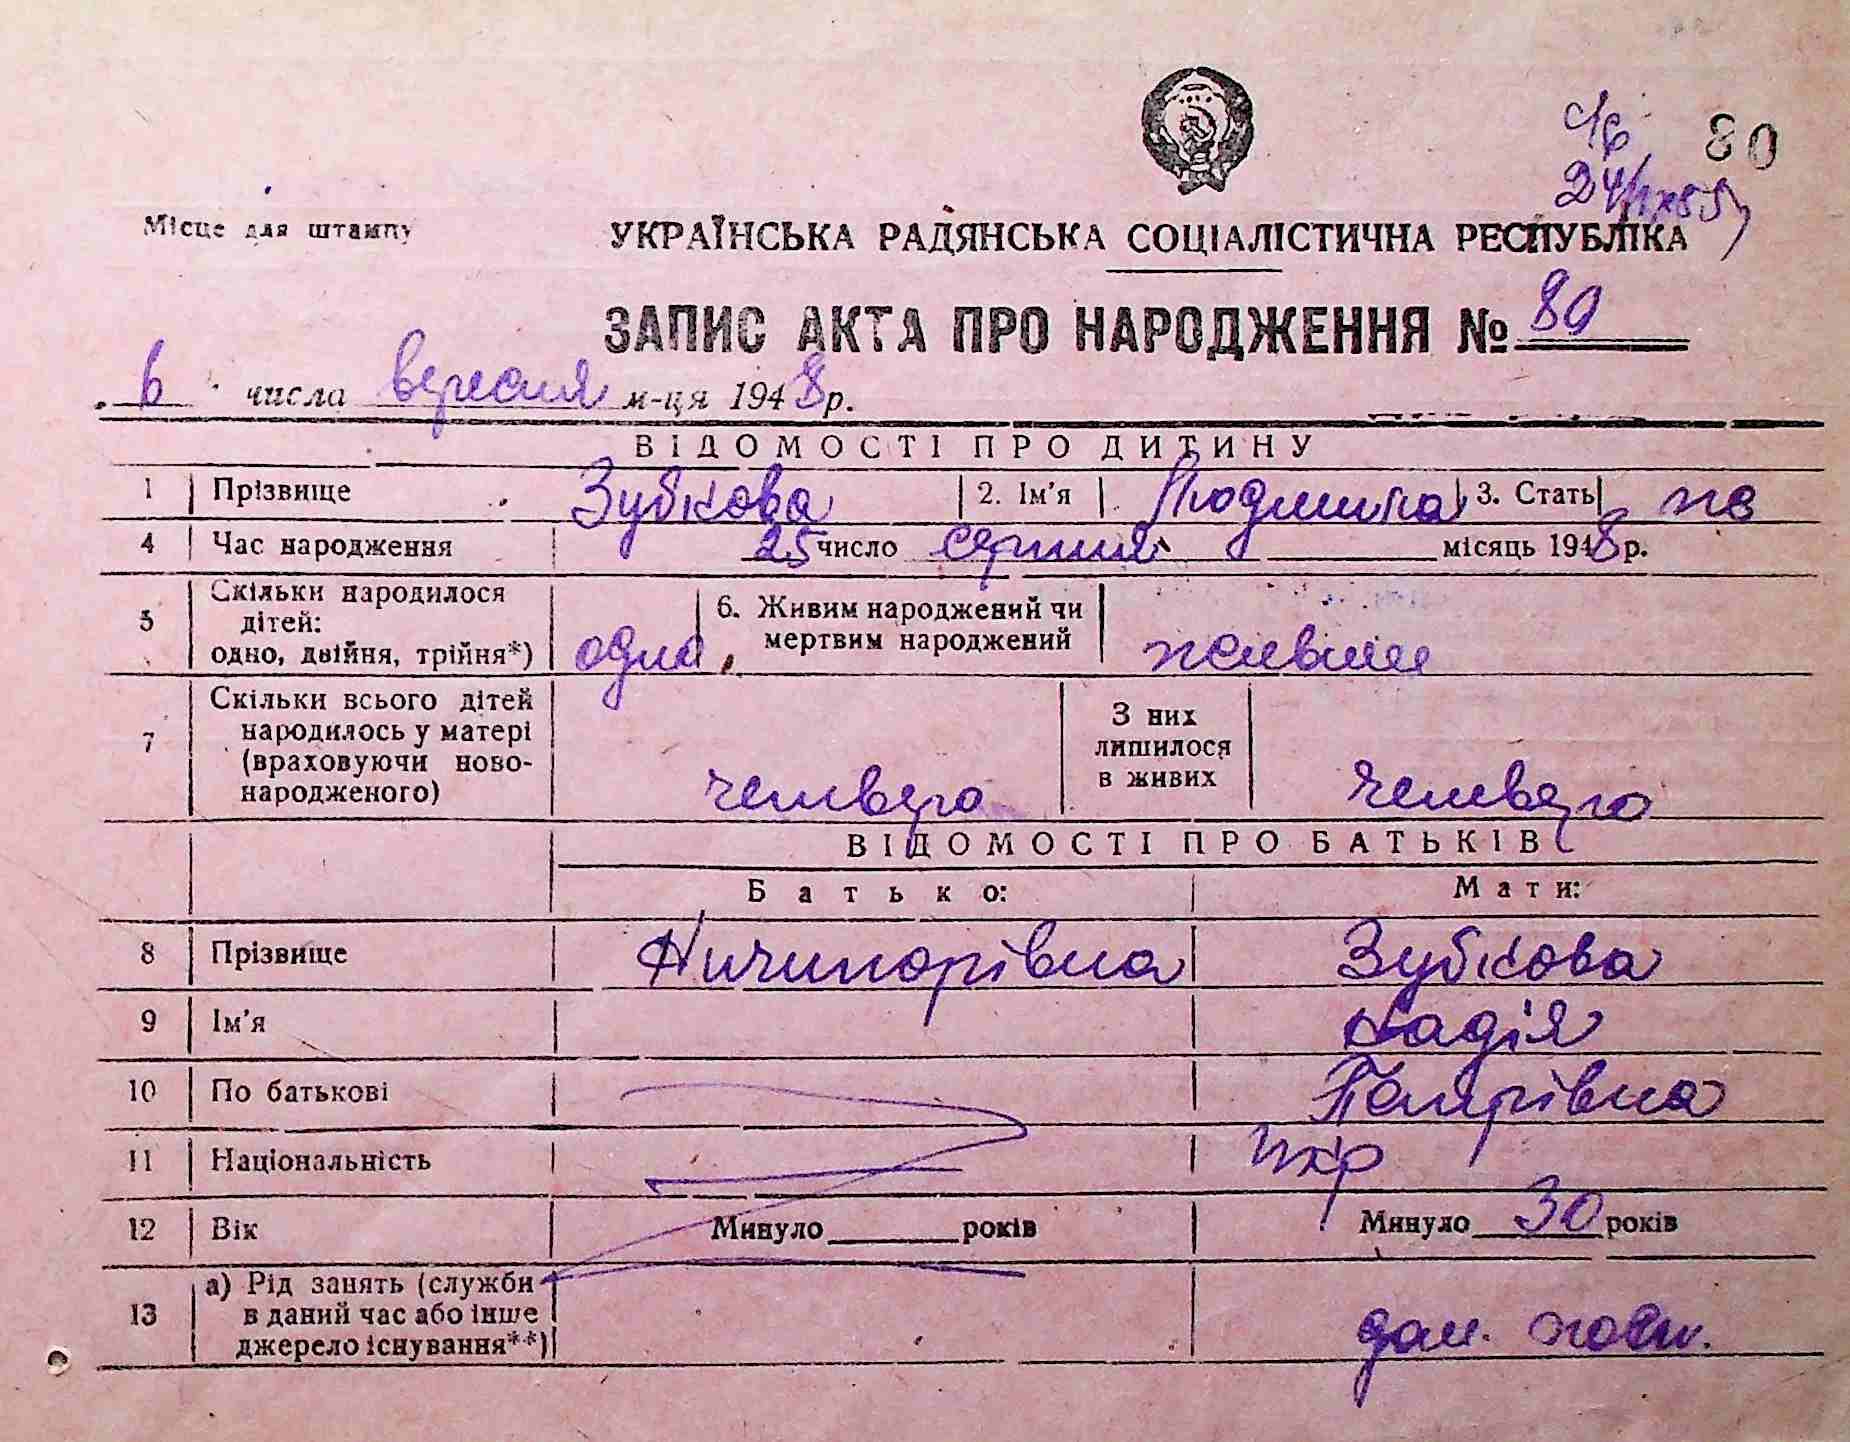 80
Місце для штампу
УКРАЇНСЬКА РАДЯНСЬКА СОЦІАЛІСТИЧНА РЕСПУБЛІКА
ЗАПИС АКТА ПРО НАРОДЖЕННЯ № 80
6 числа вересня м-ця 1948 р.
ВІДОМОСТІ ПРО ДИТИНУ
1 Прізвище Зубкова 2. Ім'я Людмила 3. Стать жв
4 Час народження 25 число серпня місяць 1948 р.
5 Скільки народилося дітей: одно, двійня, трійня*) одно 6. Живим народжений чи мертвим народжений живим
7 Скільки всього дітей народилось у матері (враховуючи ново-народженого) четверо З них лишилося в живих четверо
ВІДОМОСТІ ПРО БАТЬКІВ
Батько: Мати:
8 Прізвище Ничипорівна Зубкова
9 Ім'я Надія
10 По батькові Петрівна
11 Національність укр
12 Вік Минуло років Минуло 30 років
13 а) Рід занять (служби в даний час або інше джерело існування**) дом. госп.